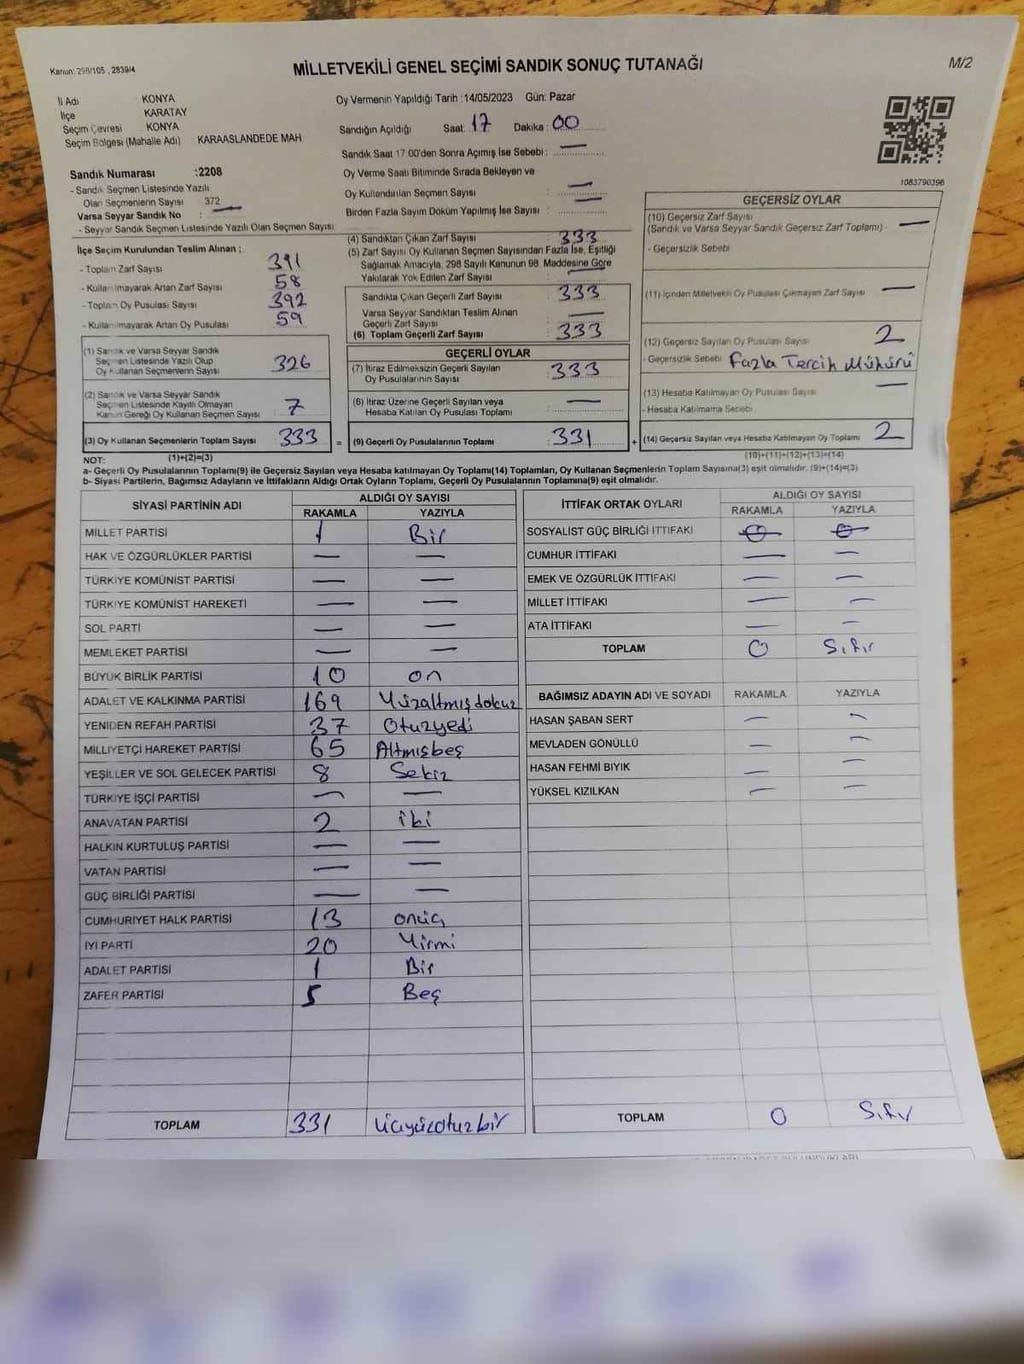 Kanun: 298/105 , 2839/4
MİLLETVEKİLİ GENEL SEÇİMİ SANDIK SONUÇ TUTANAĞI
M/2
İl Adı : KONYA
İlçe KARATAY
Seçim Çevresi : KONYA
Seçim Bölgesi (Mahalle Adı) KARAASLANDEDE MAH
Oy Vermenin Yapıldığı Tarih :14/05/2023 Gün: Pazar
Sandığın Açıldığı Saat: 17 Dakika: 00
Sandık Saat 17 00'den Sonra Açımış İse Sebebi : —
Oy Verme Saati Bitiminde Sırada Bekleyen ve
Oy Kullandırılan Seçmen Sayısı : —
Birden Fazla Sayım Döküm Yapılmış İse Sayısı : —
1083790396
Sandık Numarası :2208
- Sandık Seçmen Listesinde Yazılı
Olan Seçmenlerin Sayısı 372
Varsa Seyyar Sandık No : —
- Seyyar Sandık Seçmen Listesinde Yazılı Olan Seçmen Sayısı
İlçe Seçim Kurulundan Teslim Alınan ;
- Toplam Zarf Sayısı 391
- Kullanılmayarak Artan Zarf Sayısı 58
- Toplam Oy Pusulası Sayısı 392
- Kullanılmayarak Artan Oy Pusulası 59
(1) Sandık ve Varsa Seyyar Sandık
Seçmen Listesinde Yazılı Olup
Oy Kullanan Seçmenlerin Sayısı 326
(2) Sandık ve Varsa Seyyar Sandık
Seçmen Listesinde Kayıtlı Olmayan
Kanun Gereği Oy Kullanan Seçmen Sayısı 7
(3) Oy Kullanan Seçmenlerin Toplam Sayısı 333 =
(4) Sandıktan Çıkan Zarf Sayısı : 333
(5) Zarf Sayısı Oy Kullanan Seçmen Sayısından Fazla İse, Eşitliği
Sağlamak Amacıyla, 298 Sayılı Kanunun 98. Maddesine Göre
Yakılarak Yok Edilen Zarf Sayısı : —
Sandıkta Çıkan Geçerli Zarf Sayısı : 333
Varsa Seyyar Sandıktan Teslim Alınan
Geçerli Zarf Sayısı : —
(6) Toplam Geçerli Zarf Sayısı : 333
GEÇERLİ OYLAR
(7) İtiraz Edilmeksizin Geçerli Sayılan
Oy Pusulalarının Sayısı : 333
(8) İtiraz Üzerine Geçerli Sayılan veya
Hesaba Katılan Oy Pusulası Toplamı : —
(9) Geçerli Oy Pusulalarının Toplamı : 331 +
GEÇERSİZ OYLAR
(10) Geçersiz Zarf Sayısı
(Sandık ve Varsa Seyyar Sandık Geçersiz Zarf Toplamı) : —
- Geçersizlik Sebebi
(11) İçinden Milletvekili Oy Pusulası Çıkmayan Zarf Sayısı —
(12) Geçersiz Sayılan Oy Pusulası Sayısı 2
- Geçersizlik Sebebi Fazla Tercih Mühürü
(13) Hesaba Katılmayan Oy Pusulası Sayısı —
- Hesaba Katılmama Sebebi
(14) Geçersiz Sayılan veya Hesaba Katılmayan Oy Toplamı 2
NOT: (1)+(2)=(3) (10)+(11)+(12)+(13)=(14)
a- Geçerli Oy Pusulalarının Toplamı(9) ile Geçersiz Sayılan veya Hesaba katılmayan Oy Toplamı(14) Toplamları, Oy Kullanan Seçmenlerin Toplam Sayısına(3) eşit olmalıdır. (9)+(14)=(3)
b- Siyasi Partilerin, Bağımsız Adayların ve İttifakların Aldığı Ortak Oyların Toplamı, Geçerli Oy Pusulalarının Toplamına(9) eşit olmalıdır.
SİYASİ PARTİNİN ADI ALDIĞI OY SAYISI
RAKAMLA YAZIYLA
MİLLET PARTİSİ 1 Bir
HAK VE ÖZGÜRLÜKLER PARTİSİ — —
TÜRKİYE KOMÜNİST PARTİSİ — —
TÜRKİYE KOMÜNİST HAREKETİ — —
SOL PARTİ — —
MEMLEKET PARTİSİ — —
BÜYÜK BİRLİK PARTİSİ 10 on
ADALET VE KALKINMA PARTİSİ 169 Yüzaltmışdokuz
YENİDEN REFAH PARTİSİ 37 Otuzyedi
MİLLİYETÇİ HAREKET PARTİSİ 65 Altmışbeş
YEŞİLLER VE SOL GELECEK PARTİSİ 8 Sekiz
TÜRKİYE İŞÇİ PARTİSİ — —
ANAVATAN PARTİSİ 2 iki
HALKIN KURTULUŞ PARTİSİ — —
VATAN PARTİSİ — —
GÜÇ BİRLİĞİ PARTİSİ — —
CUMHURİYET HALK PARTİSİ 13 onüç
İYİ PARTİ 20 Yirmi
ADALET PARTİSİ 1 Bir
ZAFER PARTİSİ 5 Beş
TOPLAM 331 üçyüzotuzbir
İTTİFAK ORTAK OYLARI ALDIĞI OY SAYISI
RAKAMLA YAZIYLA
SOSYALİST GÜÇ BİRLİĞİ İTTİFAKI
CUMHUR İTTİFAKI — —
EMEK VE ÖZGÜRLÜK İTTİFAKI — —
MİLLET İTTİFAKI — —
ATA İTTİFAKI — —
TOPLAM 0 Sıfır
BAĞIMSIZ ADAYIN ADI VE SOYADI RAKAMLA YAZIYLA
HASAN ŞABAN SERT — —
MEVLADEN GÖNÜLLÜ — —
HASAN FEHMİ BIYIK — —
YÜKSEL KIZILKAN — —
TOPLAM 0 Sıfır